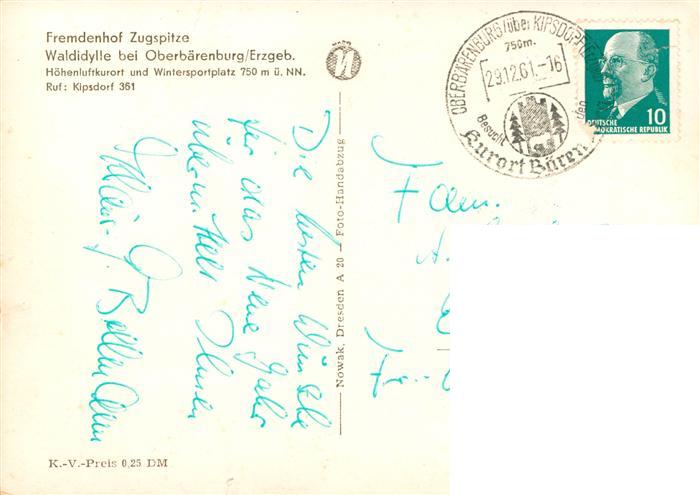 Fremdenhof Zugspitze
Waldidylle bei Oberbärenburg/Erzgeb.
Höhenluftkurort und Wintersportplatz 750 m ü. NN.
Ruf: Kipsdorf 361
OBERBÄRENBURG/über KIPSDORF
750m.
29.12.61.-16
Besucht den
Kurort Bären
DEUTSCHE
DEMOKRATISCHE REPUBLIK
10
Die besten Wünsche
für das Neue Jahr
übermittelt Ihnen
Nowak, Dresden A 20 — Foto-Handabzug
Fam.
K.-V.-Preis 0,25 DM